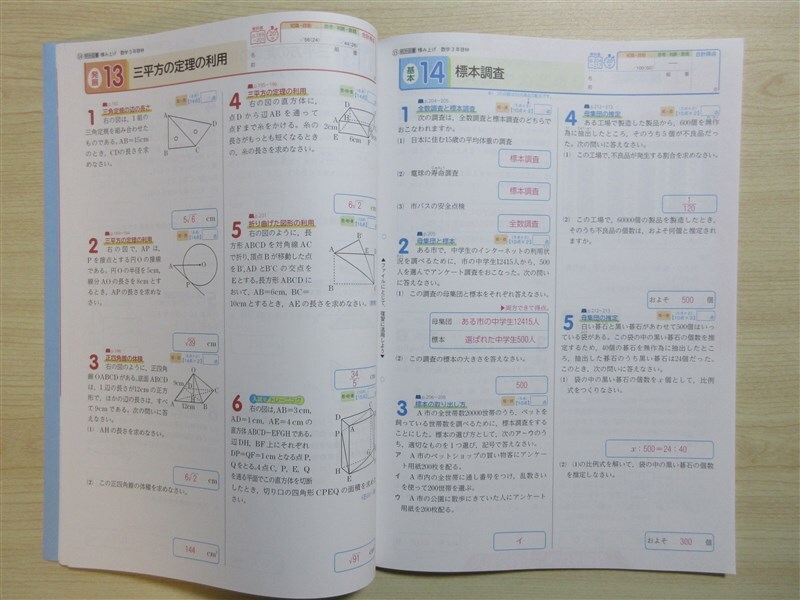 積み上げ 数学3年啓林
発展
13
三平方の定理の利用
1
三角定規の辺の長さ
右の図は、1組の
三角定規を組み合わせた
ものである。AB=15cm
のとき、CDの長さを求
めなさい。
A
D
B
C
5√6 cm
2
三平方の定理の利用
右の図で、APは、
Pを接点とする円Oの接線
である。円Oの半径を5cm、
線分AOの長さを8cmとす
るとき、APの長さを求めな
さい。
A
O
P
√39 cm
3
正四角錐の体積
右の図のように、正四角
錐OABCDがある。底面ABCD
は、1辺の長さが12cmの正方
形で、ほかの辺の長さは、すべ
て9cmである。次の問いに答
えなさい。
(1) AHの長さを求めなさい。
6√2 cm
(2) この正四角錐の体積を求めなさい。
144 cm³
4
三平方の定理の利用
右の図の直方体に、
点Dから辺ABを通って
点Fまで糸をかける。糸の
長さがもっとも短くなるとき
の、糸の長さを求めなさい。
6√2 cm
5
折り曲げた図形の利用
右の図のように、長
方形ABCDを対角線AC
で折り、頂点Bが移動した点
をB'、ADとB'Cの交点を
Eとする。長方形ABCDに
おいて、AB=6cm、BC=
10cmとするとき、AEの長さを求めなさい。
34
5
6
右の図は、AB=3cm、
AD=1cm、AE=4cmの
直方体ABCD-EFGHである。
辺DH、BF上にそれぞれ
DP=QF=1cmとなる点P、
Qをとる。4点C、P、E、Q
を通る平面でこの直方体を切断
したとき、切り口の四角形CPEQの面積を求め
積み上げ 数学3年啓林
基本
14
標本調査
1
全数調査と標本調査
次の調査は、全数調査と標本調査のどちらで
おこなわれますか。
(1) 日本に住む15歳の平均体重の調査
標本調査
(2) 電球の寿命調査
標本調査
(3) 市バスの安全点検
全数調査
2
母集団と標本
ある市で、中学生のインターネットの利用状
況を調べるために、市の中学生12415人から、500
人を選んでアンケート調査をおこなった。次の問い
に答えなさい。
(1) この調査の母集団と標本をそれぞれ答えなさい。
▶両方できて得点
母集団 ある市の中学生12415人
標本 選ばれた中学生500人
(2) この調査の標本の大きさを答えなさい。
500
3
標本の取り出し方
A市の全世帯数20000世帯のうち、ペットを
飼っている世帯数を調べるために、標本調査をする
ことにした。標本の選び方として、次のア〜ウのう
ち、適切なものを1つ選び、記号で答えなさい。
ア A市のペットショップの買い物客にアンケー
ト用紙200枚を配る。
イ A市内の全世帯に通し番号をつけ、乱数さい
を使って200世帯を選ぶ。
ウ A市の公園に散歩にきていた人にアンケート
用紙を200枚配る。
イ
4
母集団の推定
ある工場で製造した製品から、600個を無作
為に抽出したところ、そのうち5個が不良品だった。
次の問いに答えなさい。
(1) この工場で、不良品が発生する割合を求めなさい。
1
120
(2) この工場で、60000個の製品を製造したとき、
そのうち不良品の個数は、およそ何個と推定されま
すか。
およそ 500 個
5
母集団の推定
白い碁石と黒い碁石があわせて500個はいっ
ている袋がある。この袋の中の黒い碁石の個数を推
定するため、40個の碁石を無作為に抽出したところ、
抽出した碁石のうち黒い碁石は24個だった。
このとき、次の問いに答えなさい。
(1) 袋の中の黒い碁石の個数をx個として、比例
式をつくりなさい。
x:500=24:40
(2) (1)の比例式を解いて、袋の中の黒い碁石の個数
を推定しなさい。
およそ 300 個